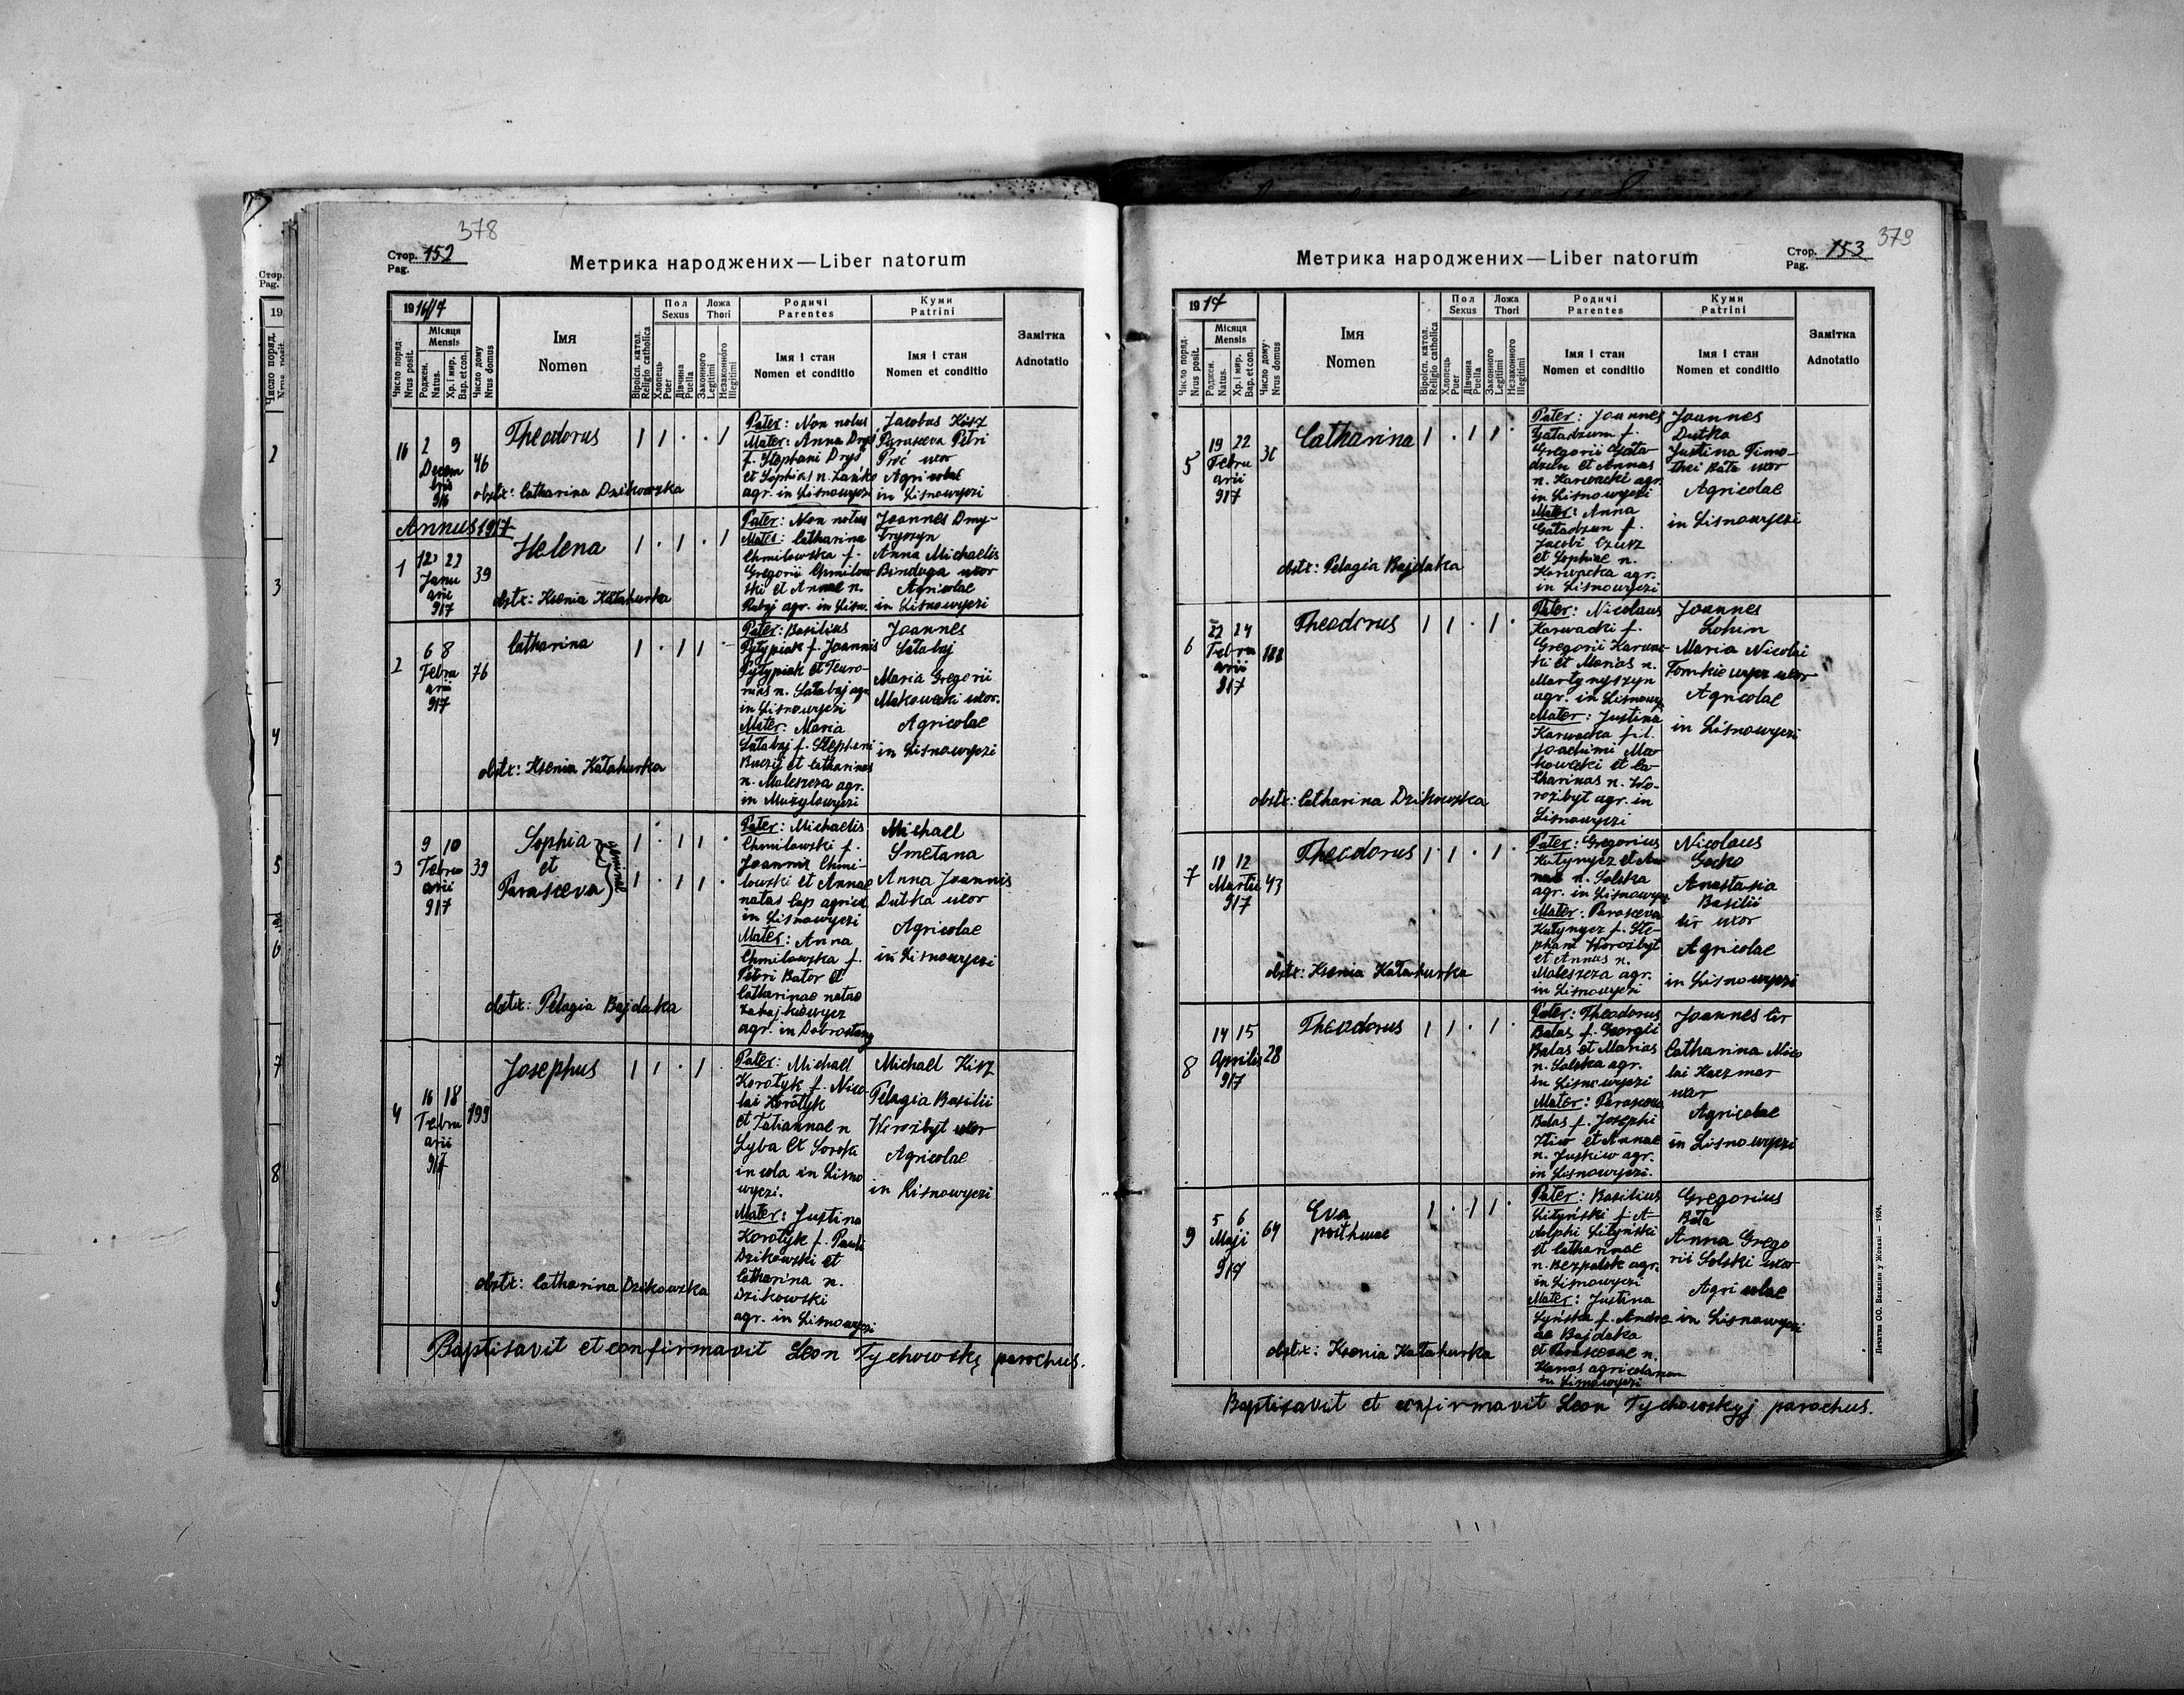 378
Стор. 152
Pag.
Метрика народжених—Liber natorum
1916/17
Число поряд.
Nrus posit.
Місяця
Mensis
Роджен.
Natus.
Хр. і мир.
Bap. et con.
Число дому
Nrus domus
Імя
Nomen
Віроісп. катол.
Religio catholica
Пол
Sexus
Хлопець
Puer
Дівчина
Puella
Ложа
Thori
Законного
Legitimi
Незаконного
Illegitimi
Родичі
Parentes
Імя і стан
Nomen et conditio
Куми
Patrini
Імя і стан
Nomen et conditio
Замітка
Adnotatio
16
2 9
Decem
bris
916
46
Theodorus
1 1 . . 1
obstx: Catharina Dzikowska
Pater: Non notus
Mater: Anna Dryś
f. Stephani Dryś
et Sophias n.
agr. in Lisnowyczi
Jacobus Kisz
Parasceva Petri
Proć uxor
Agricolae
in Lisnowyczi
Annus 1917
1
22
Janu
arii
917
39
Helena
1 . 1 . 1
obstx: Ksenia Katahurka
Pater: Non notus
Mater: Catharina
Chmilowska f.
Gregorii Chmilow
ski et Annae n.
agr. in Lisn.
Joannes Dmy-
tryszyn
Anna Michaelis
Binduga uxor
Agricolae
in Lisnowyczi
2
6 8
Febru
arii
917
76
Catharina
1 . 1 1 .
obstx: Ksenia Katahurka
Pater: Basilius
Pytypiak f. Joannis
Pytypiak et Teuro-
nias n. Satabaj agr.
in Lisnowyczi
Mater: Maria
Satabaj f. Stephani
et Catharinas
n. Maleszcza agr.
in Mużylowyczi
Joannes
Satabaj
Maria Gregorii
Makowecki uxor.
Agricolae
in Lisnowyczi
3
9 10
Febru
arii
917
39
Sophia
et
Parasceva
gemini
1 . 1 1 .
1 . 1 1 .
obstx: Pelagia Bajdaka
Pater: Michaelis
Chmilowski f.
Joannis Chmi-
lowski et Annae
natas Cap agricol.
in Lisnowyczi
Mater: Anna
Chmilowska f.
Petri Bator et
Catharinae natae
Zahajkiewycz
agr. in Dobrostany
Michael
Smetana
Anna Joannis
Dutka uxor
Agricolae
in Lisnowyczi
4
16 18
Febru
arii
917
199
Josephus
1 1 . 1 .
obstx: Catharina Dzikowska
Pater: Michael
Korotyk f. Nico-
lai Korotyk
et Tatiannae n
Lyba ex Soroki
incola in Lisno
wyczi.
Mater: Justina
Korotyk f. Pauli
Dzikowski et
Catharina n.
Dzikowski
agr. in Lisnowyczi
Michael Kisz
Pelagia Basilii
Worożbyt uxor
Agricolae
in Lisnowyczi
Baptisavit et confirmavit Leon Tychowský parochus.
379
Стор. 153
Pag.
Метрика народжених—Liber natorum
1917
Число поряд.
Nrus posit.
Місяця
Mensis
Роджен.
Natus.
Хр. і мир.
Bap. et con.
Число дому
Nrus domus
Імя
Nomen
Віроісп. катол.
Religio catholica
Пол
Sexus
Хлопець
Puer
Дівчина
Puella
Ложа
Thori
Законного
Legitimi
Незаконного
Illegitimi
Родичі
Parentes
Імя і стан
Nomen et conditio
Куми
Patrini
Імя і стан
Nomen et conditio
Замітка
Adnotatio
5
19 22
Febru
arii
917
Catharina
1 . 1 1 .
obstx: Pelagia Bajdaka
Pater: Joannes
Gatadzun f.
Gregorii Gata
dzun et Annas
n. Karwacki agr.
in Lisnowyczi
Mater: Anna
Gatadzun f.
Jacobi
et Sophiae n.
Karwacka agr.
in Lisnowyczi
Joannes
Dutka
Justina Timo-
thei Bata uxor
Agricolae
in Lisnowyczi
6
22 24
Febru
arii
917
Theodorus
1 1 . 1 .
obstx: Catharina Dzikowska
Pater: Nicolaus
Karwacki f.
Gregorii Karwac
ki et Marias n.
Martynyszyn
agr. in Lisnowy
Mater: Justina
Karwacka fil.
Joachimi Ma
kowecki et Ca-
tharinas n. Wo-
rożbyt agr. in
Lisnowyczi
Joannes
Lohin
Maria Nicolai
Fomkiewycz uxor
Agricolae
in Lisnowyczi
7
11 12
Martii
917
43
Theodorus
1 1 . 1 .
obstx: Ksenia Katahurka
Pater: Gregorius
Kutynycz et An
nae n. Solska
agr. in Lisnowycz
Mater: Parasceva
Kutynycz f. Ste-
phani Worożbyt
et Annas n.
Maleszcza agr.
in Lisnowyczi
Nicolaus
Gocko
Anastasia
Basilii
Cir uxor
Agricolae
in Lisnowyczi
8
14 15
Aprilis
917
28
Theodorus
1 1 . 1 .
Pater: Theodorus
Balas f. Georgii
Balas et Marias
n. Solska agr.
in Lisnowyczi
Mater: Parasceva
Balas f. Josephi
Ilkiw et Annae
n. Juskiw agr.
in Lisnowyczi.
Joannes Cir
Catharina Nico
lai Kaczmar
uxor
Agricolae
in Lisnowyczi
9
5 6
Maji
917
64
Eva
posthumae
1 . 1 1 .
obstx: Ksenia Katahurka
Pater: Basilius
Lityński f. A-
dolphi Lityński
et Catharinae
n. Bezpalok agr.
in Lisnowyczi
Mater: Justina
f. Andre
ae Bajdaka
et Parascevae n.
Kanas agricolarum
in Lisnowyczi
Gregorius
Bata
Anna Grego
rii Solski uxor
Agricolae
in Lisnowyczi
Baptisavit et confirmavit Leon Tychowskyj parochus.
Печатня ОО. Василіян у Жовкві — 1924.